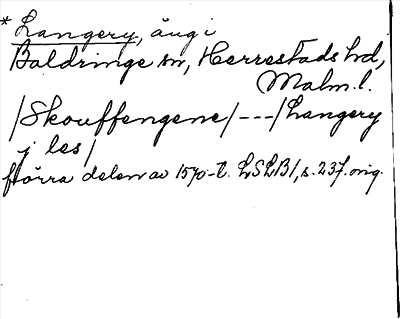 * Langery, äng i
Baldringe sn, Herrestads hd,
Malm. l.
/Skouffengene/---/Langery
j les/
förra delen av 1570-t. LSLB1, s. 237. orig.